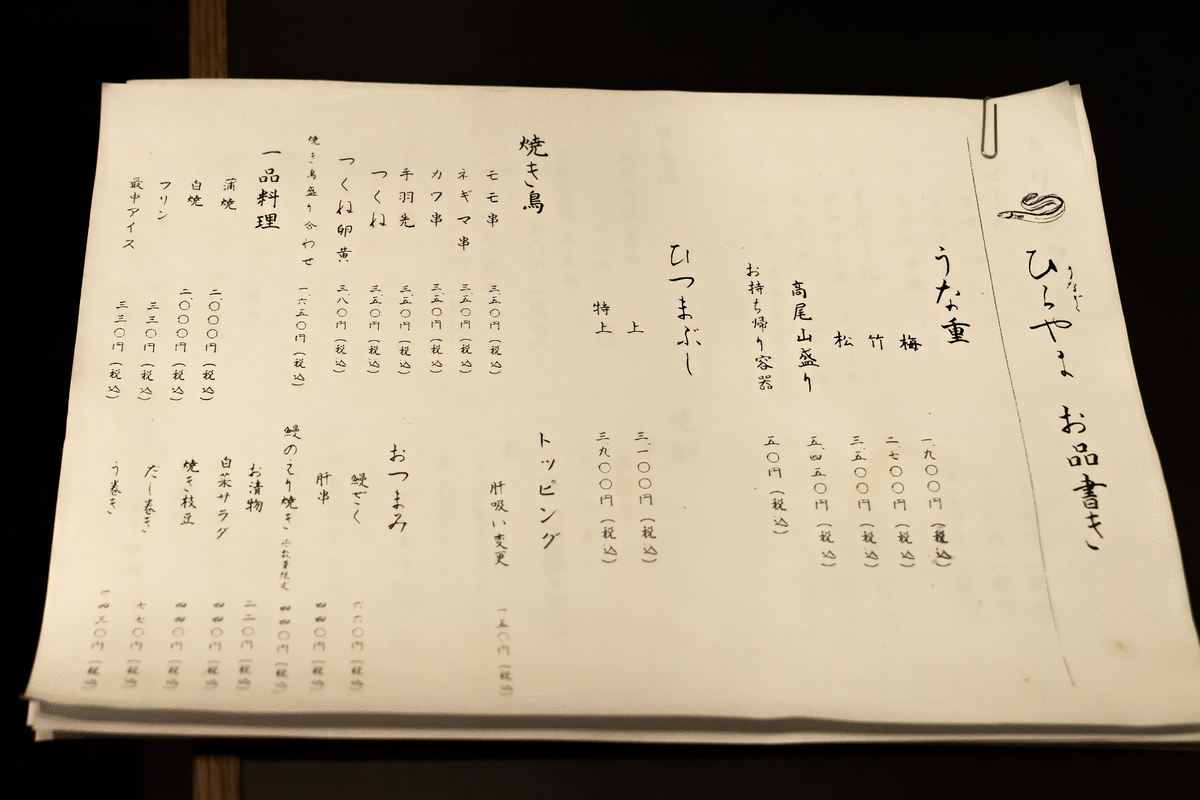 うなぎ
ひらやま お品書き
うな重
梅 一、九〇〇円（税込）
竹 二、七〇〇円（税込）
松 三、五〇〇円（税込）
高尾山盛り 五、四五〇円（税込）
お持ち帰り容器 五〇円（税込）
ひつまぶし
上 三、一〇〇円（税込）
特上 三、九〇〇円（税込）
トッピング
肝吸い変更 一五〇円（税込）
焼き鳥
モモ串 三五〇円（税込）
ネギマ串 三五〇円（税込）
カワ串 三五〇円（税込）
手羽先 三五〇円（税込）
つくね 三五〇円（税込）
つくね卵黄 三八〇円（税込）
焼き鳥盛り合わせ 一、六五〇円（税込）
一品料理
蒲焼 二、〇〇〇円（税込）
白焼 二、〇〇〇円（税込）
プリン 三三〇円（税込）
最中アイス 三三〇円（税込）
おつまみ
鰻ざく 六六〇円（税込）
肝串 四四〇円（税込）
鰻のえり焼き ※数量限定 四四〇円（税込）
お漬物 二二〇円（税込）
白菜サラダ 四四〇円（税込）
焼き枝豆 四四〇円（税込）
だし巻き 七七〇円（税込）
う巻き 一、四三〇円（税込）